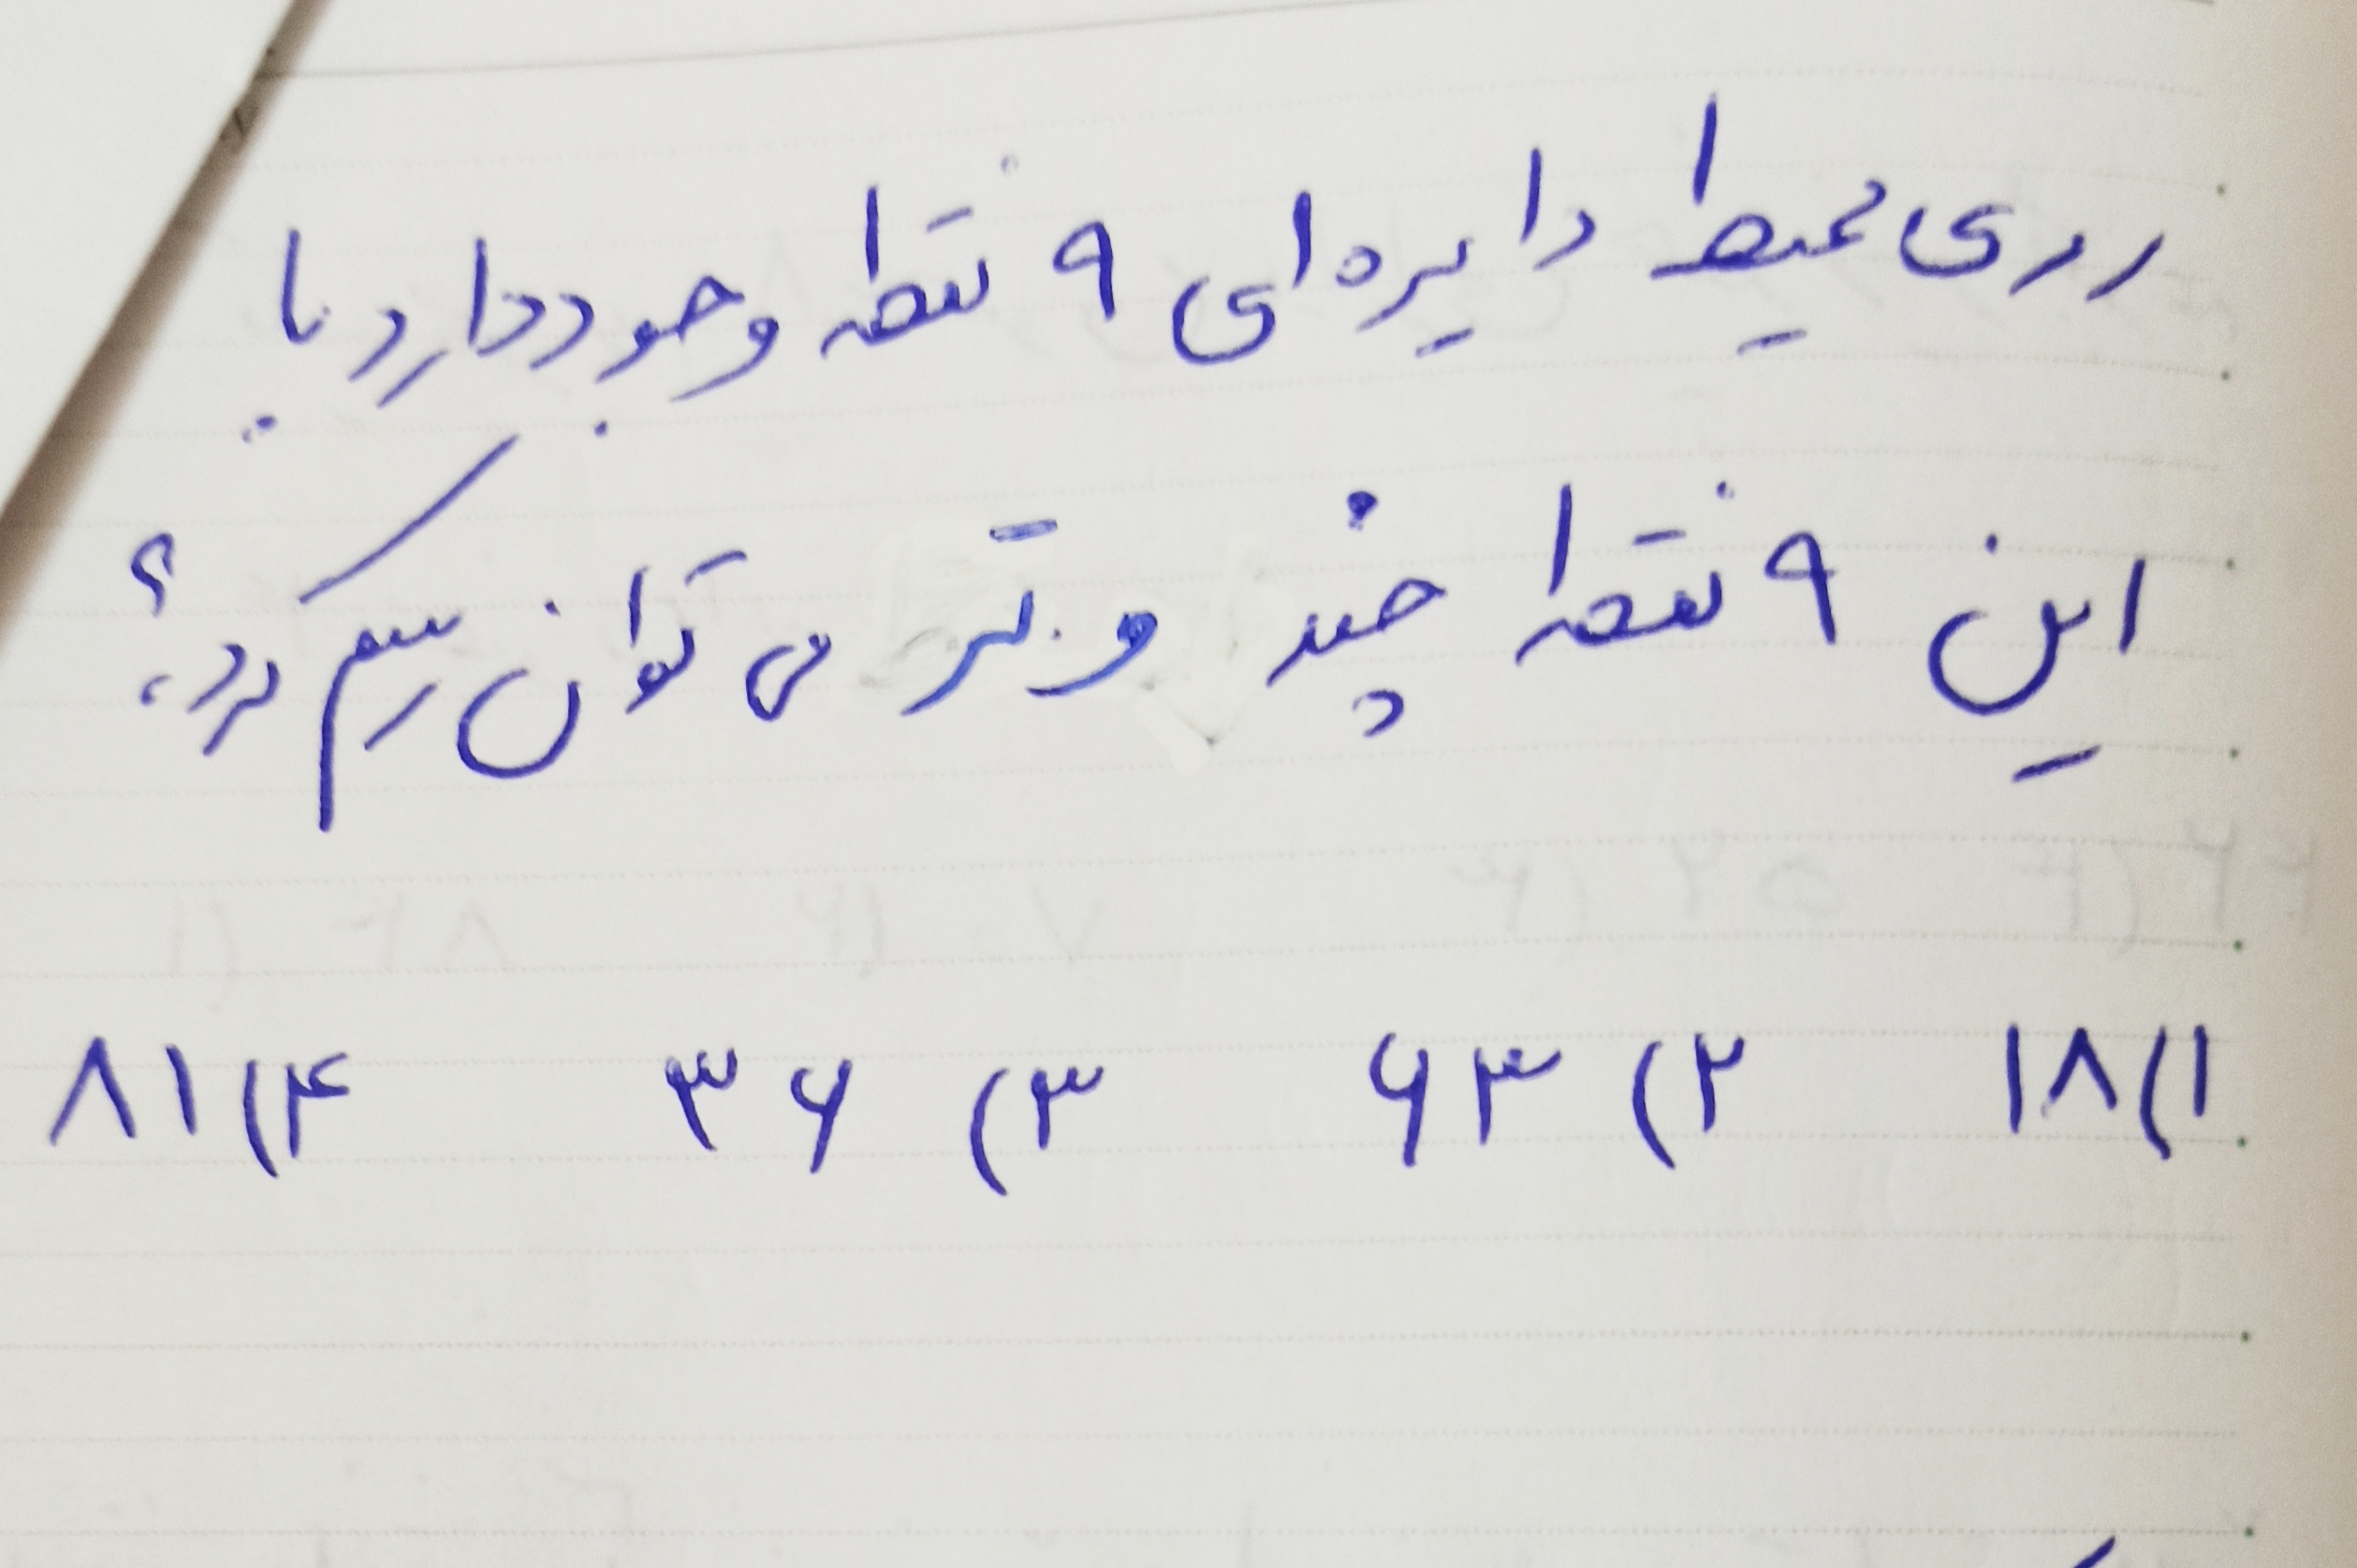 روی محیط دایره‌ای ۹ نقطه وجود دارد با
این ۹ نقطه چند وتر می توان رسم کرد؟
۱) ۱۸ ۲) ۶۳ ۳) ۳۶ ۴) ۸۱